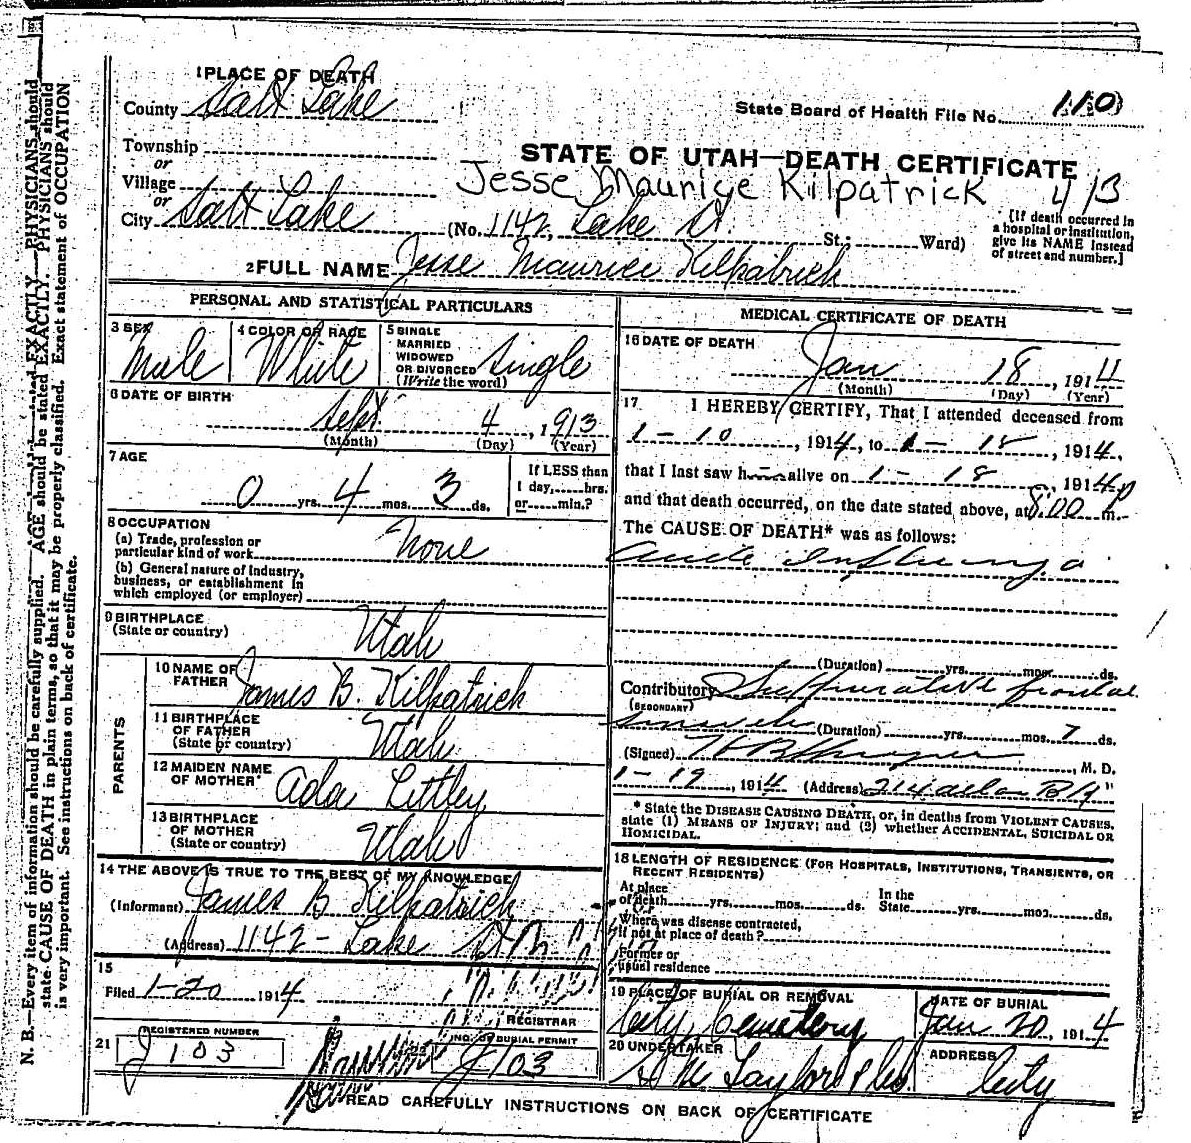 1 PLACE OF DEATH
County Salt Lake
State Board of Health File No. 110
Township
or
Village
or
City Salt Lake
STATE OF UTAH—DEATH CERTIFICATE
Jesse Maurice Kilpatrick 413
(No. 1142, Lake St. St.; Ward)
[If death occurred in
a hospital or institution,
give its NAME instead
of street and number.]
2 FULL NAME Jesse Maurice Kilpatrick
PERSONAL AND STATISTICAL PARTICULARS
3 SEX
Male
4 COLOR OR RACE
White
5 SINGLE
MARRIED
WIDOWED
OR DIVORCED
(Write the word)
Single
6 DATE OF BIRTH
Sept 4, 1913
(Month) (Day) (Year)
7 AGE
0 yrs. 4 mos. 3 ds.
If LESS than
1 day,......hrs.
or......min.?
8 OCCUPATION
(a) Trade, profession or
particular kind of work None
(b) General nature of Industry,
business, or establishment in
which employed (or employer)
9 BIRTHPLACE
(State or country) Utah
PARENTS
10 NAME OF
FATHER James B. Kilpatrick
11 BIRTHPLACE
OF FATHER
(State or country) Utah
12 MAIDEN NAME
OF MOTHER Ada Littley
13 BIRTHPLACE
OF MOTHER
(State or country) Utah
14 THE ABOVE IS TRUE TO THE BEST OF MY KNOWLEDGE
(Informant) James B Kilpatrick
(Address) 1142 - Lake St
15
Filed 1-20 1914
REGISTRAR
21 REGISTERED NUMBER
J 103
NO. OF BURIAL PERMIT
J 103
MEDICAL CERTIFICATE OF DEATH
16 DATE OF DEATH
Jan 18, 1914
(Month) (Day) (Year)
17 I HEREBY CERTIFY, That I attended deceased from
1-10, 1914, to 1-18, 1914,
that I last saw h alive on 1-18, 1914
and that death occurred, on the date stated above, at 8:00 p m.
The CAUSE OF DEATH* was as follows:
acute Influenza
(Duration) yrs. mos. ds.
Contributory Suppurative frontal
(SECONDARY)
sinusitis (Duration) yrs. mos. 7 ds.
(Signed) , M. D.
1-19, 1914 (Address) 214
* State the DISEASE CAUSING DEATH, or, in deaths from VIOLENT CAUSES,
state (1) MEANS OF INJURY; and (2) whether ACCIDENTAL, SUICIDAL OR
HOMICIDAL.
18 LENGTH OF RESIDENCE (FOR HOSPITALS, INSTITUTIONS, TRANSIENTS, OR
RECENT RESIDENTS)
At place
of death yrs. mos. ds.
In the
State yrs. mos. ds.
Where was disease contracted,
if not at place of death?
Former or
usual residence
19 PLACE OF BURIAL OR REMOVAL
City Cemetery
DATE OF BURIAL
Jan 20, 1914
20 UNDERTAKER
S M Taylor & Co.
ADDRESS
City
READ CAREFULLY INSTRUCTIONS ON BACK OF CERTIFICATE
N. B.—Every item of information should be carefully supplied. AGE should be stated EXACTLY. PHYSICIANS should
state CAUSE OF DEATH in plain terms, so that it may be properly classified. Exact statement of OCCUPATION
is very important. See instructions on back of certificate.